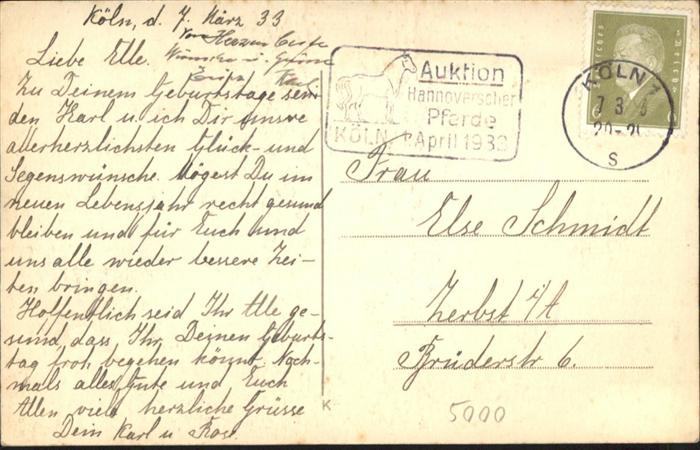 Köln, d. 7. März 33
Von Herzen beste
Liebe Elle. Wünsche u. Grüsse
Zu Deinem Geburtstage sen-
den Karl u. ich Dir unsre
allerherzlichsten Glück- und
Segenswünsche. Mögest Du im
neuen Lebensjahr recht gesund
bleiben und für Euch und
uns alle wieder bessere Zei-
ten bringen.
Hoffentlich seid Ihr Alle ge-
sund, dass Ihr Deinen Geburts-
tag froh begehen könnt. Noch-
mals alles Gute und Euch
Allen viele herzliche Grüsse
Dein Karl u.
Auktion
Hannoverscher
Pferde
KÖLN 1. April 1933
KÖLN 1
7 3 3
20-21
S
Frau
Else Schmidt
Zerbst i/A
Brüderstr 6.
K
5000